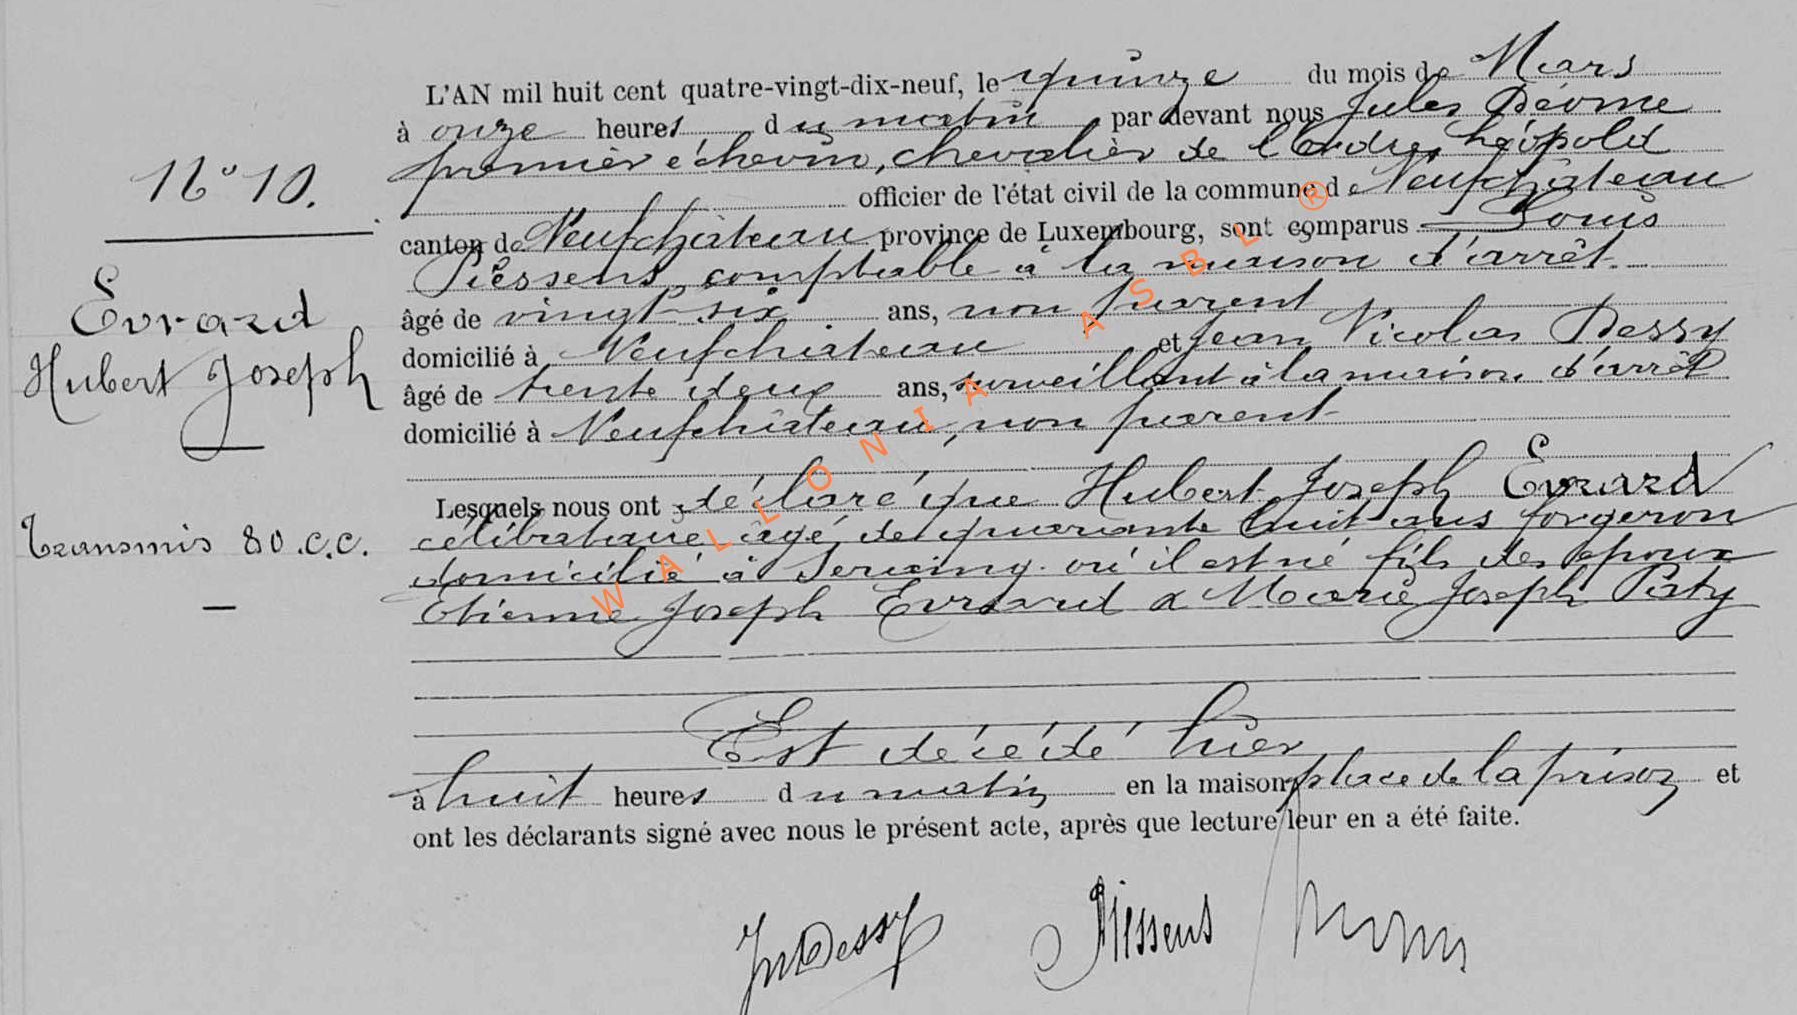 L'AN mil huit cent quatre-vingt-dix-neuf, le quinze du mois de Mars
à onze heures du matin par devant nous Jules Déome
premier échevin, chevalier de l'Ordre Léopold
officier de l'état civil de la commune de Neufchâteau
canton de Neufchâteau province de Luxembourg, sont comparus Louis
Piessens, comptable à la maison d'arrêt
âgé de vingt-six ans, non parent
domicilié à Neufchâteau et Jean Nicolas Dessy
âgé de trente deux ans, surveillant à la maison d'arrêt
domicilié à Neufchâteau, non parent
N° 10.
Evrard
Hubert Joseph
Lesquels nous ont déclaré que Hubert Joseph Evrard
célibataire âgé de quarante huit ans forgeron
domicilié à Seraing où il est né fils des époux
Etienne Joseph Evrard & Marie Joseph Paty
Transmis 80 .C.C.
Est décédé hier
à huit heures du matin en la maison place de la prison et
ont les déclarants signé avec nous le présent acte, après que lecture leur en a été faite.
JNDessy Piessens
WALLONIA ASBL ®